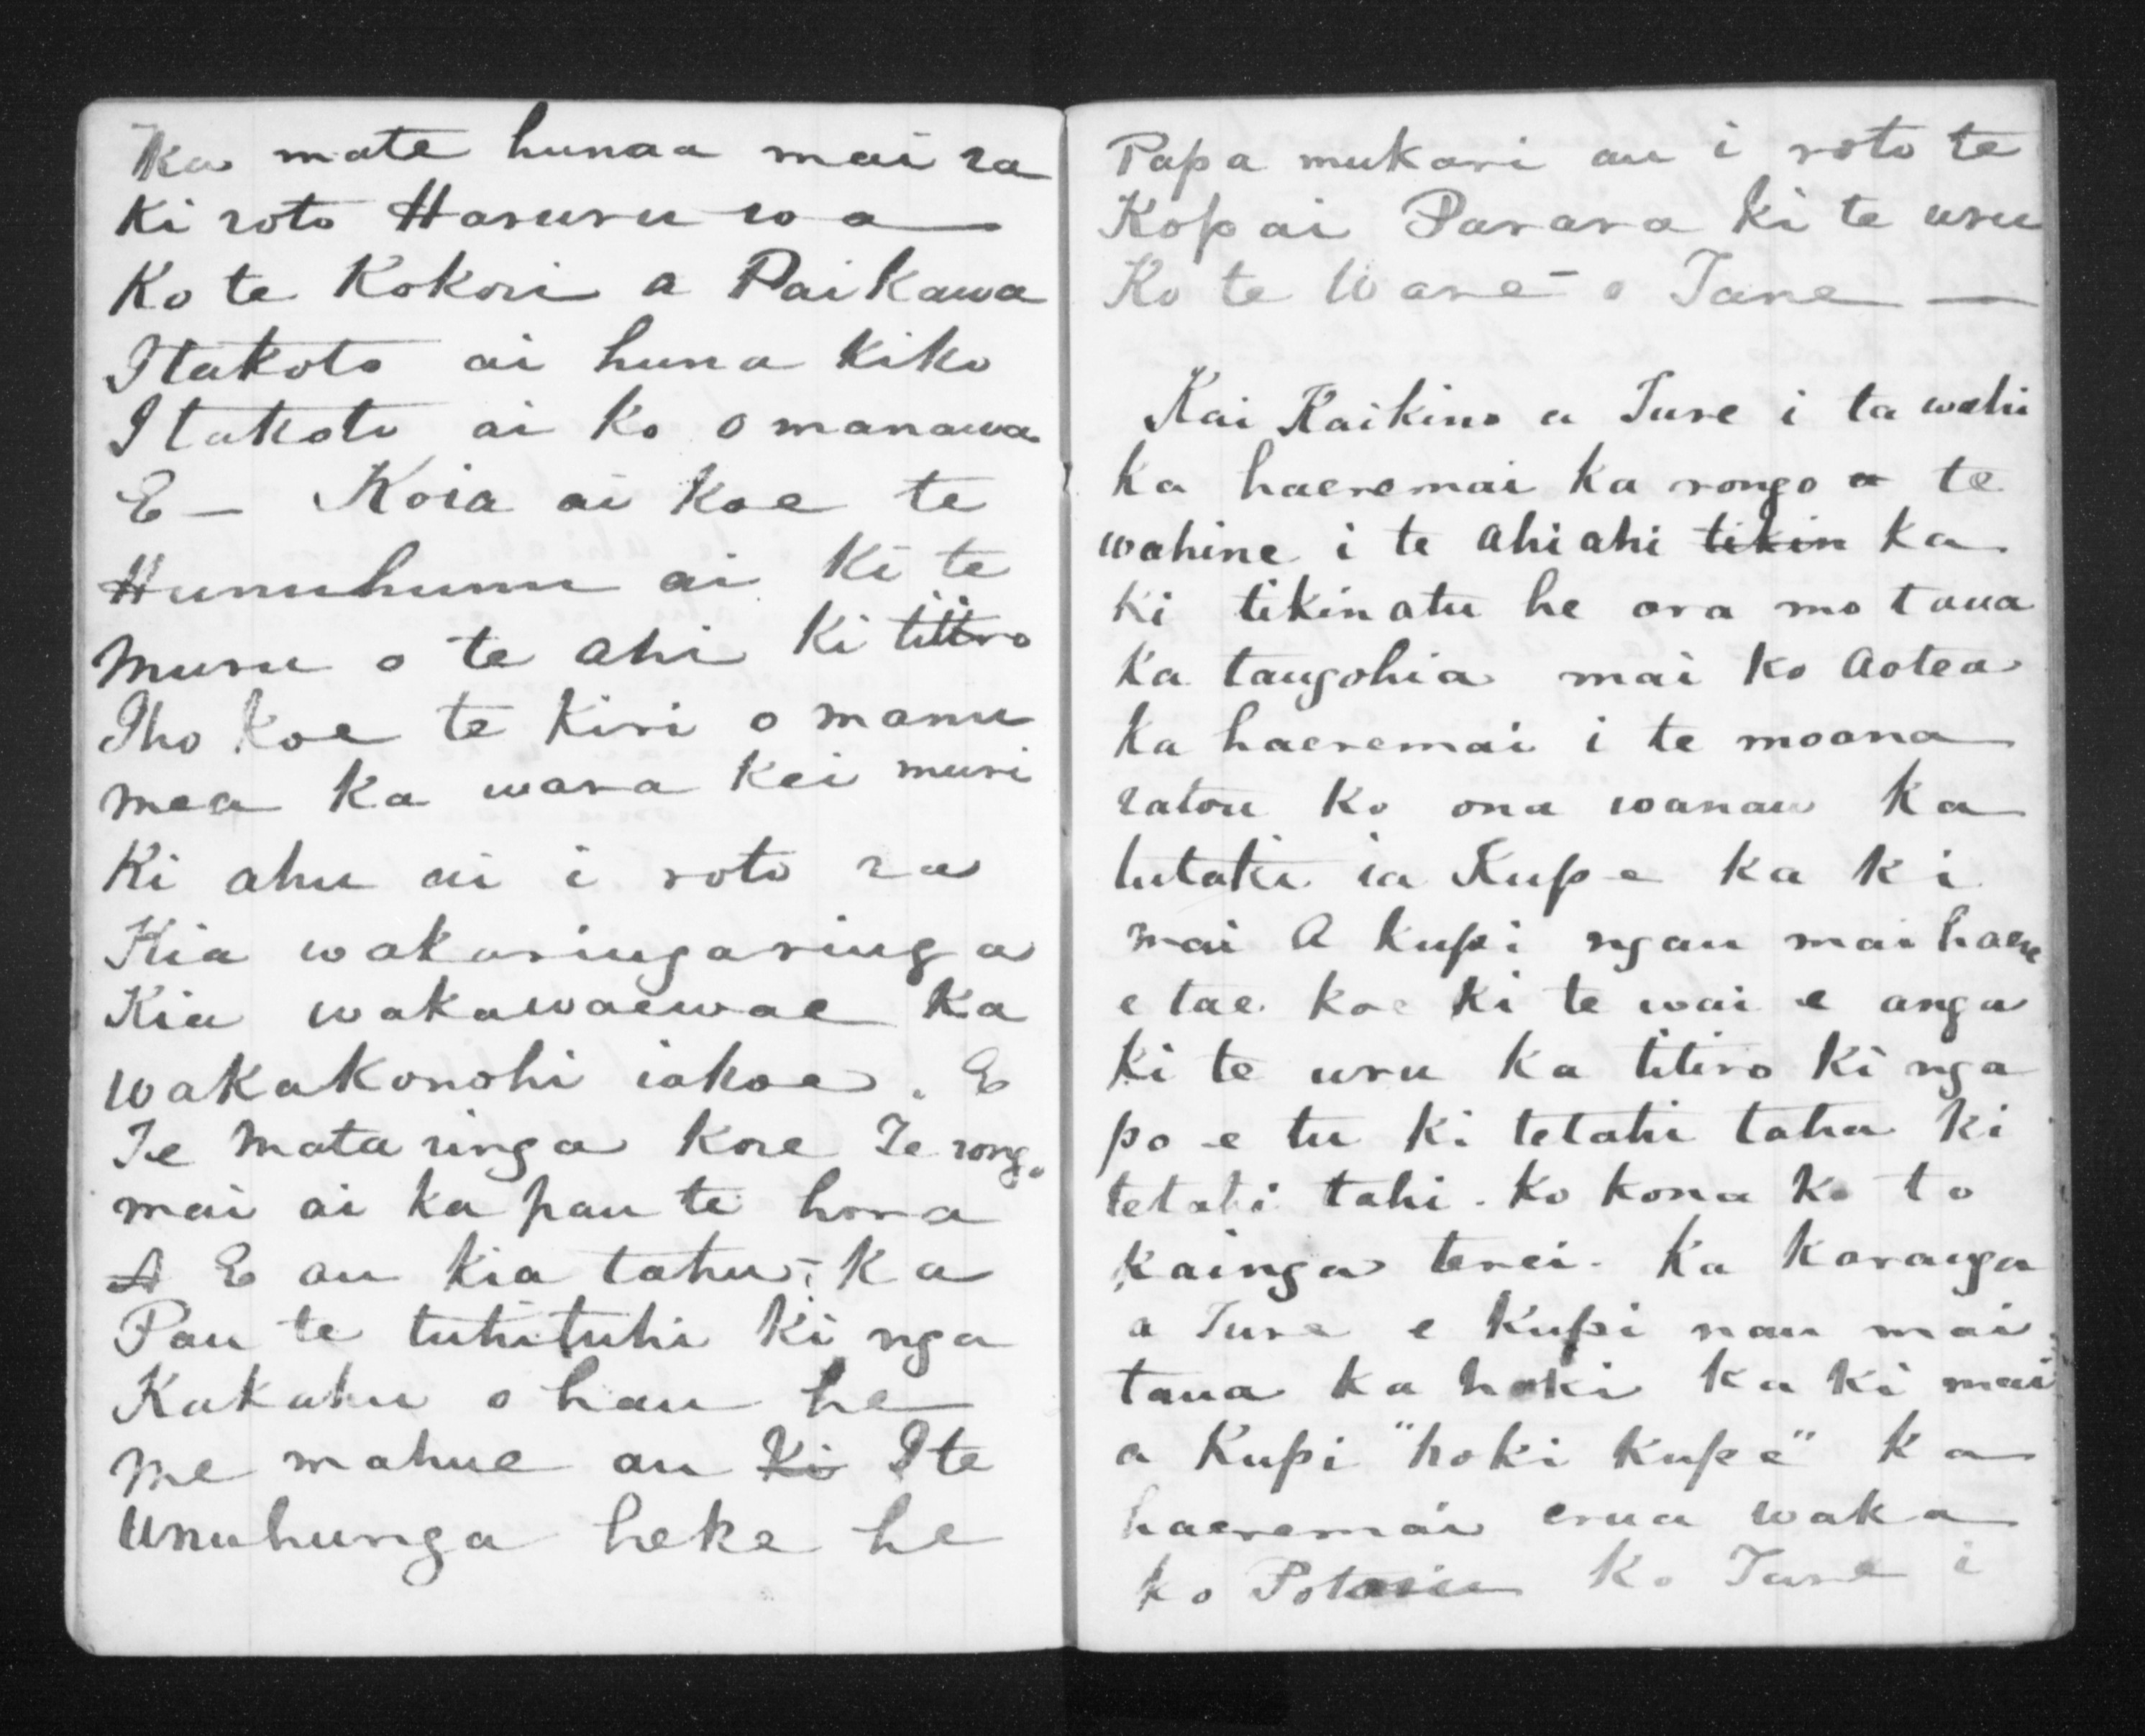 Ka mate hunaa mai ra
Ki roto Haruru wa
Ko te Kokori a Paikawa
Itakoto ai huna Kiko
Itakoto ai Ko omanawa
E – Koia ai Koe te
Hunuhunu ai Ki te
muru o te ahi Ki titiro
Iho Koe te Kiri o manu
mea Ka wara Kei muri
Ki ahu ai i roto ra
Kia wakaringaringa
Kia wakawaewae Ka
wakakonohi iakoe. E
Te mata ringa Kore Te rongo
mai ai ka pau te hora
A E au Kia tahu; Ka
Pau te tuhituhi Ki nga
Kakahu o hau he
me mahue au Ki I te
Unuhunga heke he
Papa mukari au i roto te
Kopai Parara Ki te uru
Ko te Ware – o Tane —
Kai Kaikino a Ture i ta wahi
Ka haeremai Ka rongo a te
wahine i te ahi ahi tikin Ka
Ki tikinatu he ora mo taua
Ka tangohia mai Ko Aotea
Ka haeremai i te moana
ratou Ko ona wanau Ka
tutaki ia Kupe Ka Ki
mai A Kupi ngau mai haere
e tae koe Ki te wai e anga
Ki te uru Ka titiro Ki nga
po e tu Ki tetahi taha Ki
tetahi tahi. Ko kona Ko to
Kainga terei. Ka Karanga
a Ture e Kupi nau mai
taua Ka hoki Ka Ki mai
a Kupi "hoki Kupe" Ka
haeremai erua waka
Ko Ko Ture i